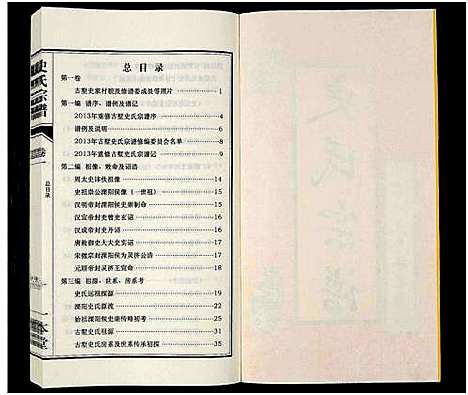 史氏宗谱
总目录
总目录
第一卷
古墅史家村貌及修谱委成员等照片 1
第一编 谱序、谱例及谱记
2013年重修古墅史氏宗谱序 4
谱例及说明 6
2013年古墅史氏宗谱修编委员会名单 8
2013年重修古墅史氏宗谱记 9
第二编 祖像、敕命及诰语
周太史佚公祖像 14
史祖崇公溧阳侯像(一世祖) 15
汉明帝封溧阳侯史崇制命 15
汉宣帝封史曾玄诏 15
汉成帝封史丹诏 15
唐赦御史大夫史宪诏 15
宋徽宗封溧阳侯为灵济公诰 15
元顺帝封灵济王宣命 15
第三编 祖源、世系、房系考
史氏远祖探源 19
溧阳史氏源流 22
始祖溧阳侯史崇传略初考 25
古墅史氏祖源 31
古墅史氏房系及世系传承初探 35